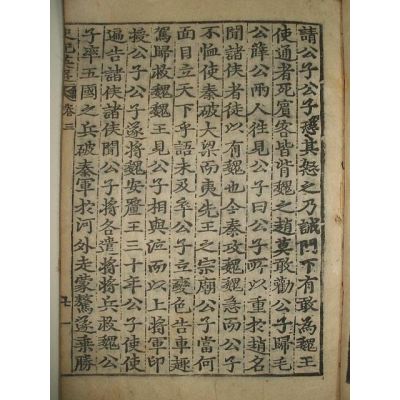 請公子公子恐其怒之乃誡門下有敢爲魏王
使通者死賓客皆背魏之趙莫敢勸公子歸毛
公薛公兩人往見公子曰公子所以重於趙名
聞諸侯者徒以有魏也今秦攻魏魏急而公子
不恤使秦破大梁而夷先王之宗廟公子當何
面目立天下乎語未及卒公子立變色告車趣
駕歸救魏魏王見公子相與泣而以上將軍印
授公子公子遂將魏安釐王三十年公子使使
遍告諸侯諸侯聞公子將各遣將將兵救魏公
子率五國之兵破秦軍於河外走蒙驁遂乘勝
史記英選 卷三